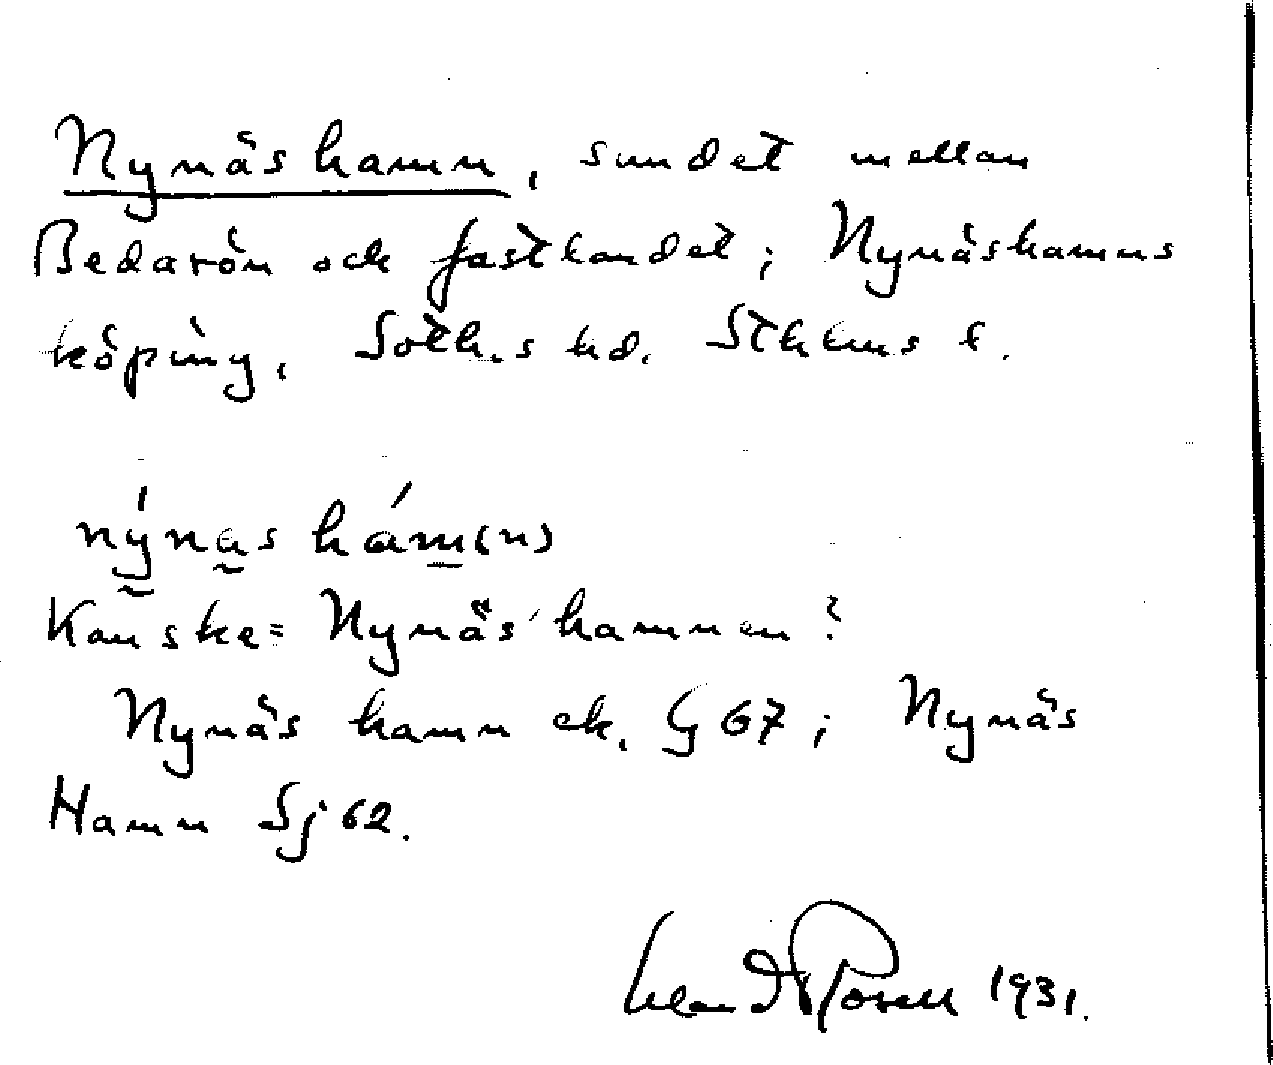 Nynäshamn, sundet mellan
Bedarön och fastlandet; Nynäshamns
köping, Soth.s hd. Sthlms l.
nýnas hám(n)
Kanske = Nynäs'hamnen?
Nynäs hamn ek. G 67; Nynäs
Hamn Sj 62.
1931.